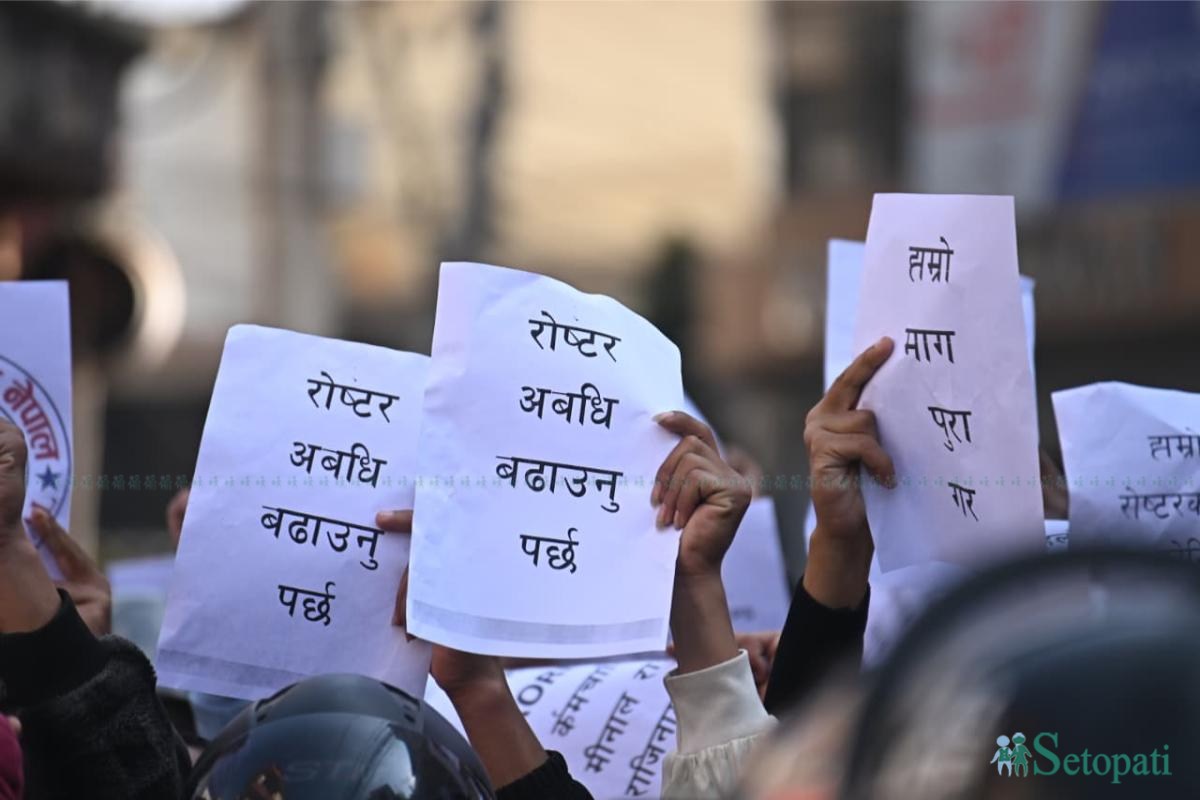 नेपाल
रोष्टर
अबधि
बढाउनु
पर्छ
रोष्टर
अबधि
बढाउनु
पर्छ
हाम्रो
माग
पुरा
गर
हाम्रो
मीनाल
Setopati